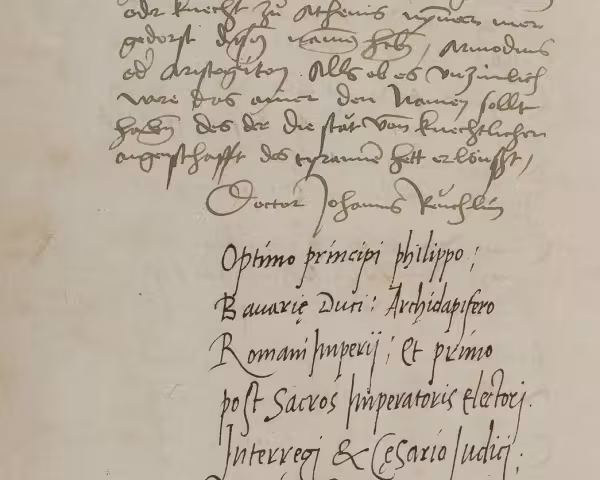 oder knecht zů Athenis nÿmer mer
gedorst disen namen heben, Armodius
od Aristogiton. Alls ob es vnzimlich
ware das ainer den Namen sollt
haben des der die stat von knechtlichen
aigenschafft des tyrannen hett erlöusst,
Doctor Johanns Reuchlin
Optimo principi philippo;
Bauarię Duci: Archidapifero
Romani Imperij; Et primo
post Sacros Imperatoris Electori.
Interregi & Cęsario Iudici;